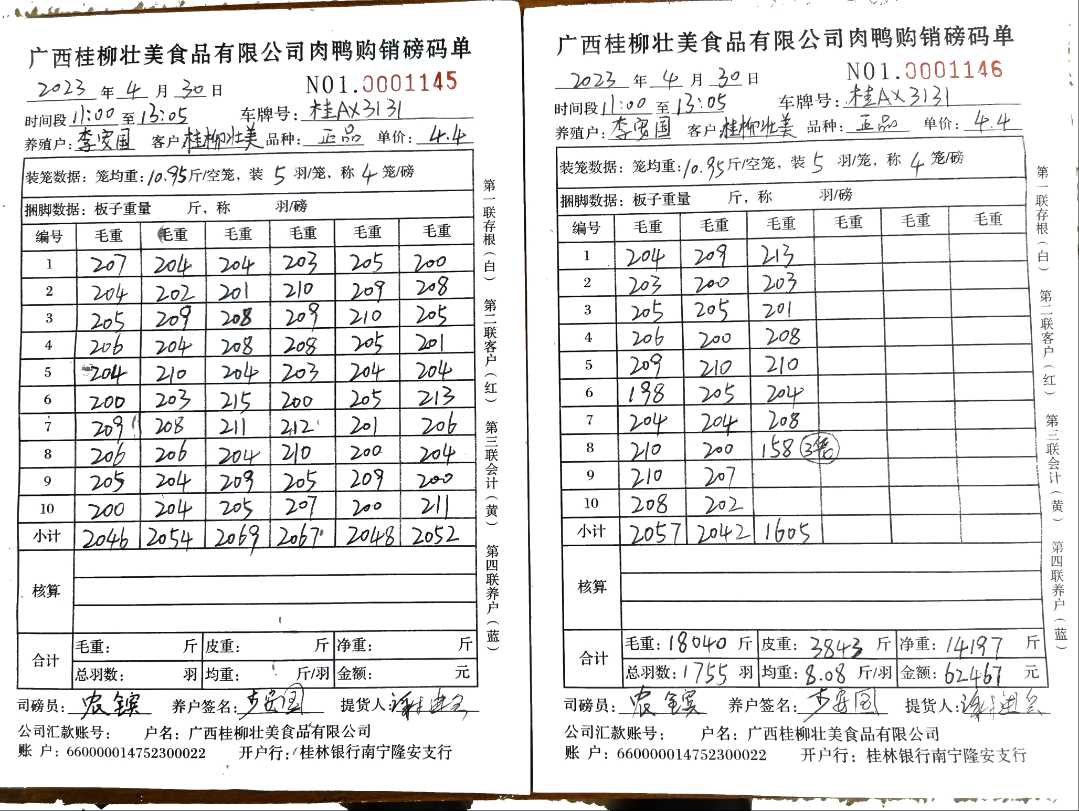 广西桂柳壮美食品有限公司肉鸭购销磅码单
2023 年 4 月 30 日 NO1.0001145
时间段 11:00 至 13:05 车牌号: 桂AX3131
养殖户: 李安国 客户 桂柳壮美 品种: 正品 单价: 4.4
装笼数据: 笼均重: 10.95 斤/空笼, 装 5 羽/笼, 称 4 笼/磅
捆脚数据: 板子重量 斤, 称 羽/磅
编号 毛重 毛重 毛重 毛重 毛重 毛重
1 207 204 204 203 205 200
2 204 202 201 210 209 208
3 205 209 208 209 210 205
4 206 204 208 208 205 201
5 204 210 204 203 204 204
6 200 203 215 200 205 213
7 209 208 211 212 201 206
8 206 206 204 210 200 204
9 205 204 209 205 209 200
10 200 204 205 207 200 211
小计 2046 2054 2069 2067 2048 2052
核算
合计 毛重: 斤 皮重: 斤 净重: 斤
总羽数: 羽 均重: 斤/羽 金额: 元
司磅员: 农镔 养户签名: 李安国 提货人:
公司汇款账号: 户名: 广西桂柳壮美食品有限公司
账 户: 660000014752300022 开户行: 桂林银行南宁隆安支行
第一联存根(白) 第二联客户(红) 第三联会计(黄) 第四联养户(蓝)
广西桂柳壮美食品有限公司肉鸭购销磅码单
2023 年 4 月 30 日 NO1.0001146
时间段 11:00 至 13:05 车牌号: 桂AX3131
养殖户: 李安国 客户 桂柳壮美 品种: 正品 单价: 4.4
装笼数据: 笼均重: 10.95 斤/空笼, 装 5 羽/笼, 称 4 笼/磅
捆脚数据: 板子重量 斤, 称 羽/磅
编号 毛重 毛重 毛重 毛重 毛重 毛重
1 204 209 213
2 203 200 203
3 205 205 201
4 206 200 208
5 209 210 210
6 198 205 204
7 204 204 208
8 210 200 158
9 210 207
10 208 202
小计 2057 2042 1605
核算
合计 毛重: 18040 斤 皮重: 3843 斤 净重: 14197 斤
总羽数: 1755 羽 均重: 8.08 斤/羽 金额: 62467 元
司磅员: 农镔 养户签名: 李安国 提货人:
公司汇款账号: 户名: 广西桂柳壮美食品有限公司
账 户: 660000014752300022 开户行: 桂林银行南宁隆安支行
第一联存根(白) 第二联客户(红) 第三联会计(黄) 第四联养户(蓝)